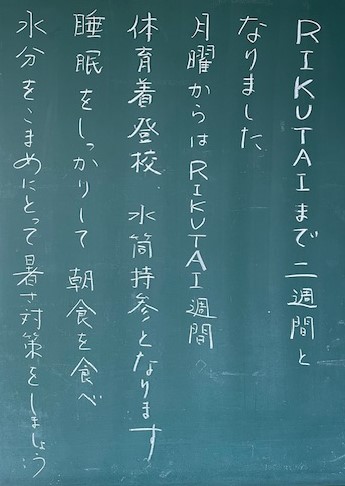 RIKUTAIまで二週間と
なりました、
月曜からはRIKUTAI週間
体育着登校、水筒持参となります
睡眠をしっかりして 朝食を食べ
水分をこまめにとって暑さ対策をしましょう